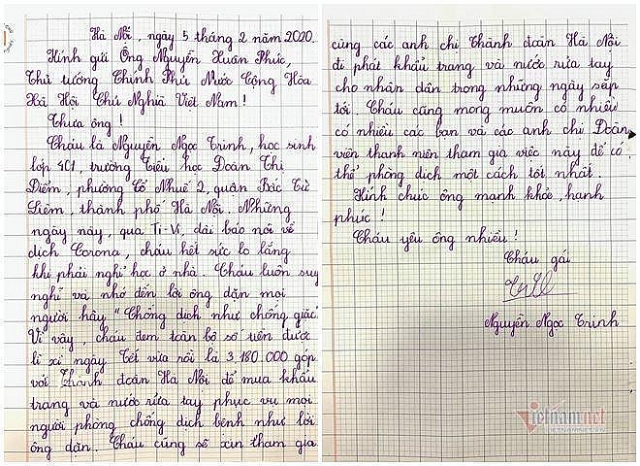 Hà Nội, ngày 5 tháng 2 năm 2020.
Kính gửi Ông Nguyễn Xuân Phúc,
Thủ tướng Chính Phủ Nước Cộng Hòa
Xã Hội Chủ Nghĩa Việt Nam!
Thưa ông!
Cháu là Nguyễn Ngọc Trinh, học sinh
lớp 4C1, trường Tiểu học Đoàn Thị
Điểm, phường Cổ Nhuế 2, quận Bắc Từ
Liêm, thành phố Hà Nội. Những
ngày này, qua Ti-Vi, đài báo nói về
dịch Corona, cháu hết sức lo lắng
khi phải nghỉ học ở nhà. Cháu luôn suy
nghĩ và nhớ đến lời ông dặn mọi
người hãy "Chống dịch như chống giặc".
Vì vậy, cháu đem toàn bộ số tiền được
lì xì ngày Tết vừa rồi là 3.180.000 góp
với Thành đoàn Hà Nội để mua khẩu
trang và nước rửa tay phục vụ mọi
người phòng chống dịch bệnh như lời
ông dặn. Cháu cũng sẽ xin tham gia
cùng các anh chị Thành đoàn Hà Nội
đi phát khẩu trang và nước rửa tay
cho nhân dân trong những ngày sắp
tới. Cháu cũng mong muốn có nhiều
có nhiều các bạn và các anh chị Đoàn
viên thanh niên tham gia việc này để có
thể phòng dịch một cách tốt nhất.
Kính chúc ông mạnh khỏe, hạnh
phúc!
Cháu yêu ông nhiều!
Cháu gái
Nguyễn Ngọc Trinh
Vietnamnet